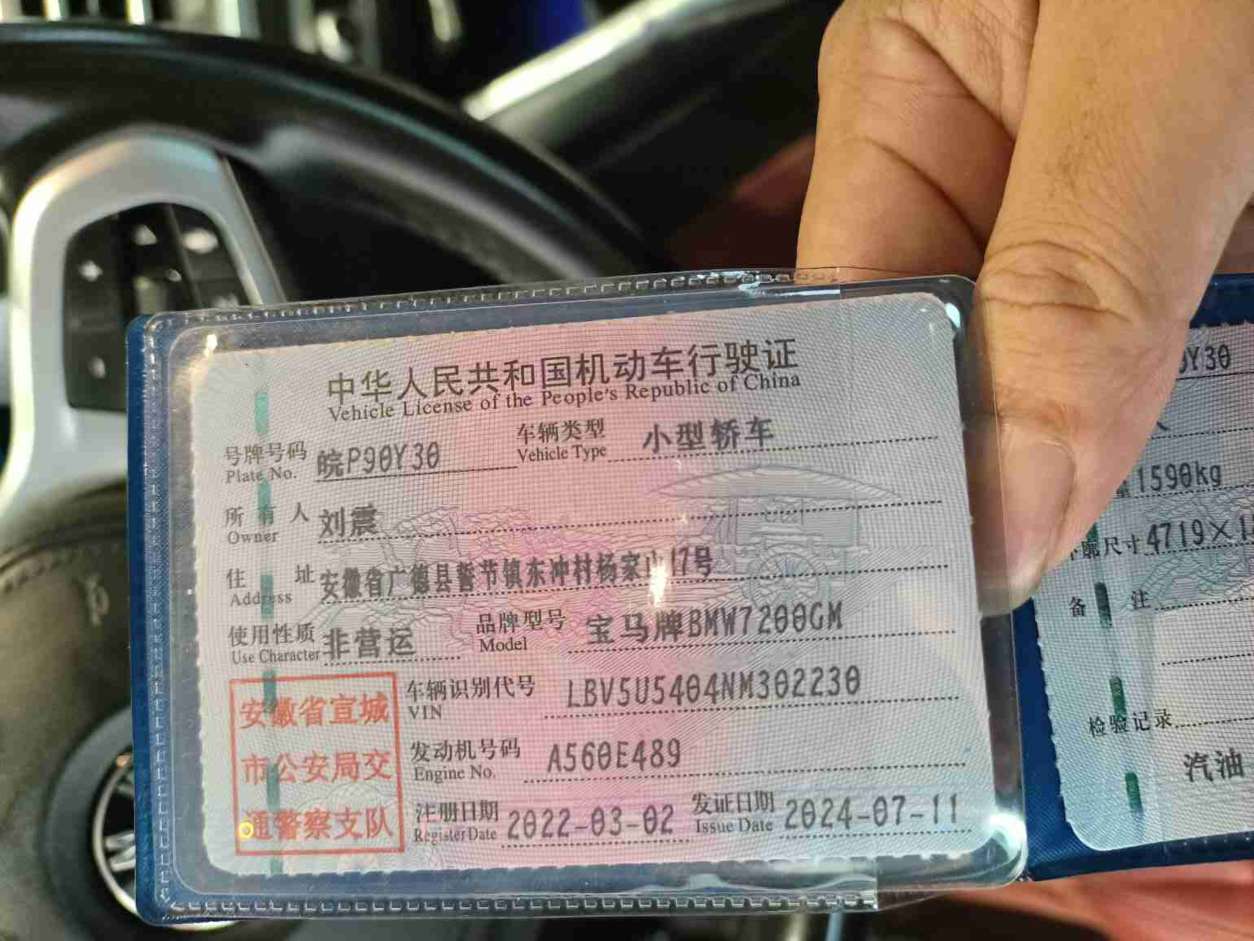 中华人民共和国机动车行驶证
Vehicle License of the People's Republic of China
号牌号码 皖P90Y30 车辆类型 小型轿车
Plate No. Vehicle Type
所有人 刘震
Owner
住址 安徽省广德县誓节镇东冲村杨家山17号
Address
使用性质 非营运 品牌型号 宝马牌BMW7200GM
Use Character Model
车辆识别代号 LBV5U5404NM302230
VIN
发动机号码 A560E489
Engine No.
注册日期 2022-03-02 发证日期 2024-07-11
Register Date Issue Date
安徽省宣城
市公安局交
通警察支队
0Y30
1590kg
廓尺寸 4719×1
备注
检验记录
汽油